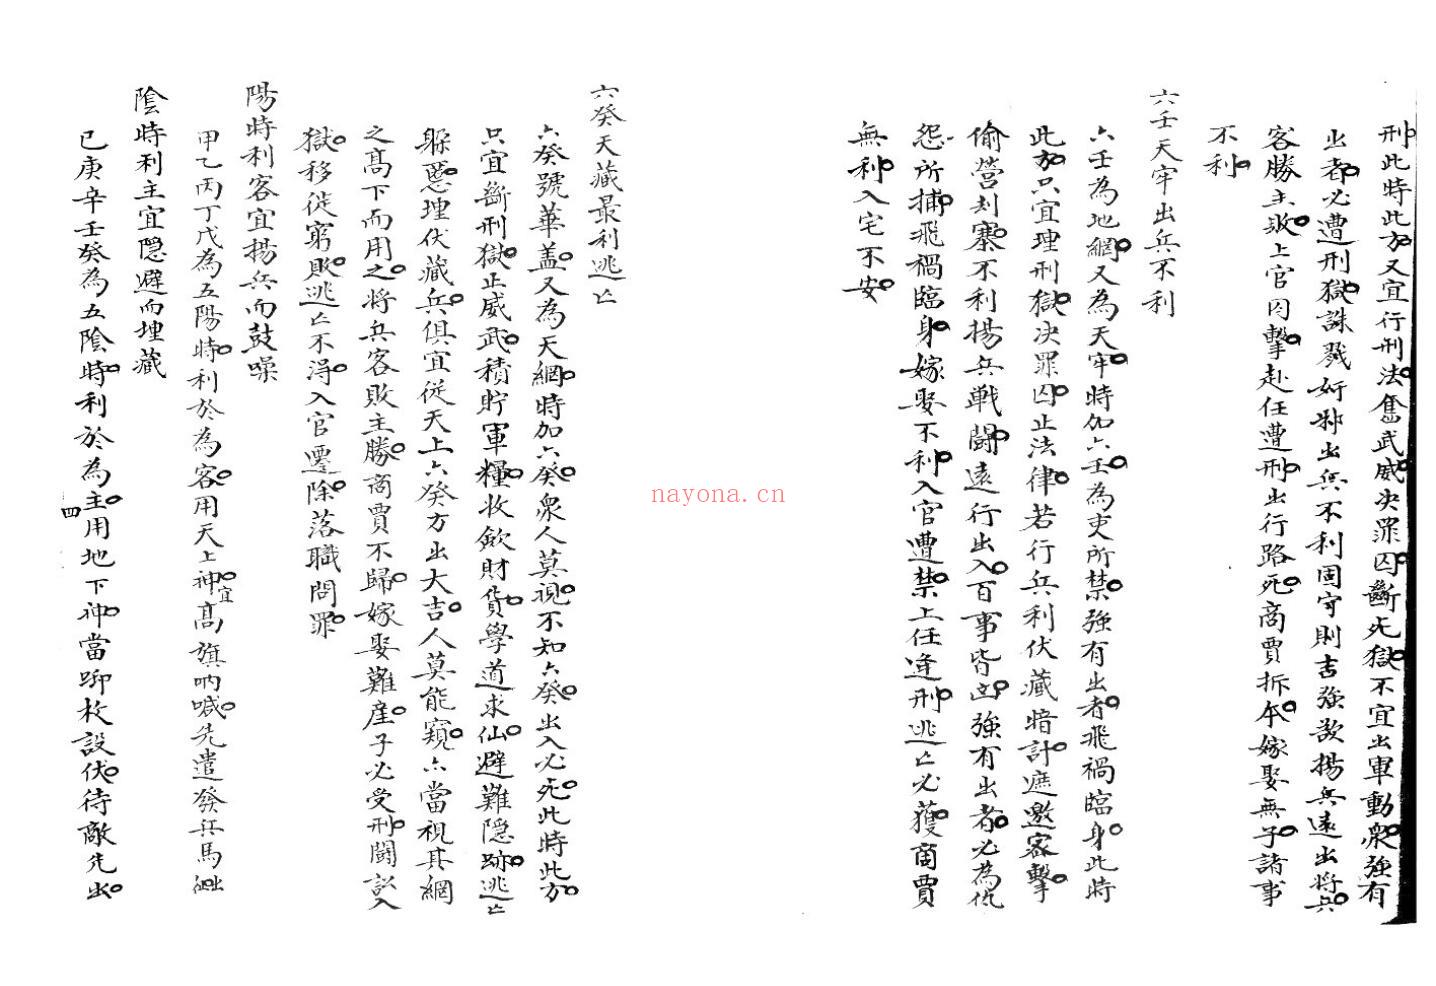 刑此時此方又宜行刑法奮武威決罪囚斷死獄不宜出軍動衆強有
出者必遭刑獄誅戮奸邪出兵不利固守則吉強敵揚兵遠出將兵
客勝主敗上官囚擊赴任遭刑出行路死商賈折本嫁娶無子諸事
不利
六壬天牢出兵不利
六壬為地網又為天牢時加六壬為吏所禁強有出者飛禍臨身此時
此方只宜理刑獄决罪囚止法律若行兵利伏藏暗計遮邀客擊
偷營刦寨不利揚兵戰鬪遠行出入百事皆凶強有出者必為仇
怨所捕飛禍臨身嫁娶不利入官遭禁上任逢刑逃亡必獲商賈
無利入宅不安
六癸天藏最利逃亡
六癸號華盖又為天網時加六癸衆人莫視不知六癸出入必死此時此方
只宜斷刑獄止威武積貯軍糧收斂財貨學道求仙避難隱跡逃亡
躲慝埋伏藏兵俱宜從天上六癸方出大吉人莫能窺六當視其網
之高下而用之將兵客敗主勝商賈不歸嫁娶難産子必受刑鬪訟入
獄移徙窮敗逃亡不淂入官遷除落職問罪
陽時利客宜揚兵而鼓噪
甲乙丙丁戊為五陽時利於為客用天上神宜高旗吶喊先遣發兵馬
陰時利主宜隱避而埋藏
已庚辛壬癸為五陰時利於為主用地下神當啣枚設伏待敵先出
四
nayona.cn